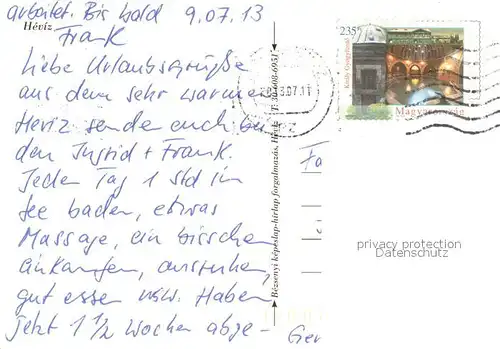 arbeitet. Bis bald 9.07.13
Frank
Hévíz
Liebe Urlaubsgrüße
aus dem sehr warmen
Heviz sende euch bei
den Ingrid + Frank.
Jeden Tag 1 Std im
See baden, etwas
Massage, ein bisschen
einkaufen, ausruhen,
gut essen usw. Haben
jetzt 1 1/2 Wochen abge-
Bézsenyi képeslap-hírlap forgalmazás, Hévíz T: 30/608-6951
235
Magyarország
Fa
Ger
privacy protection
Datenschutz